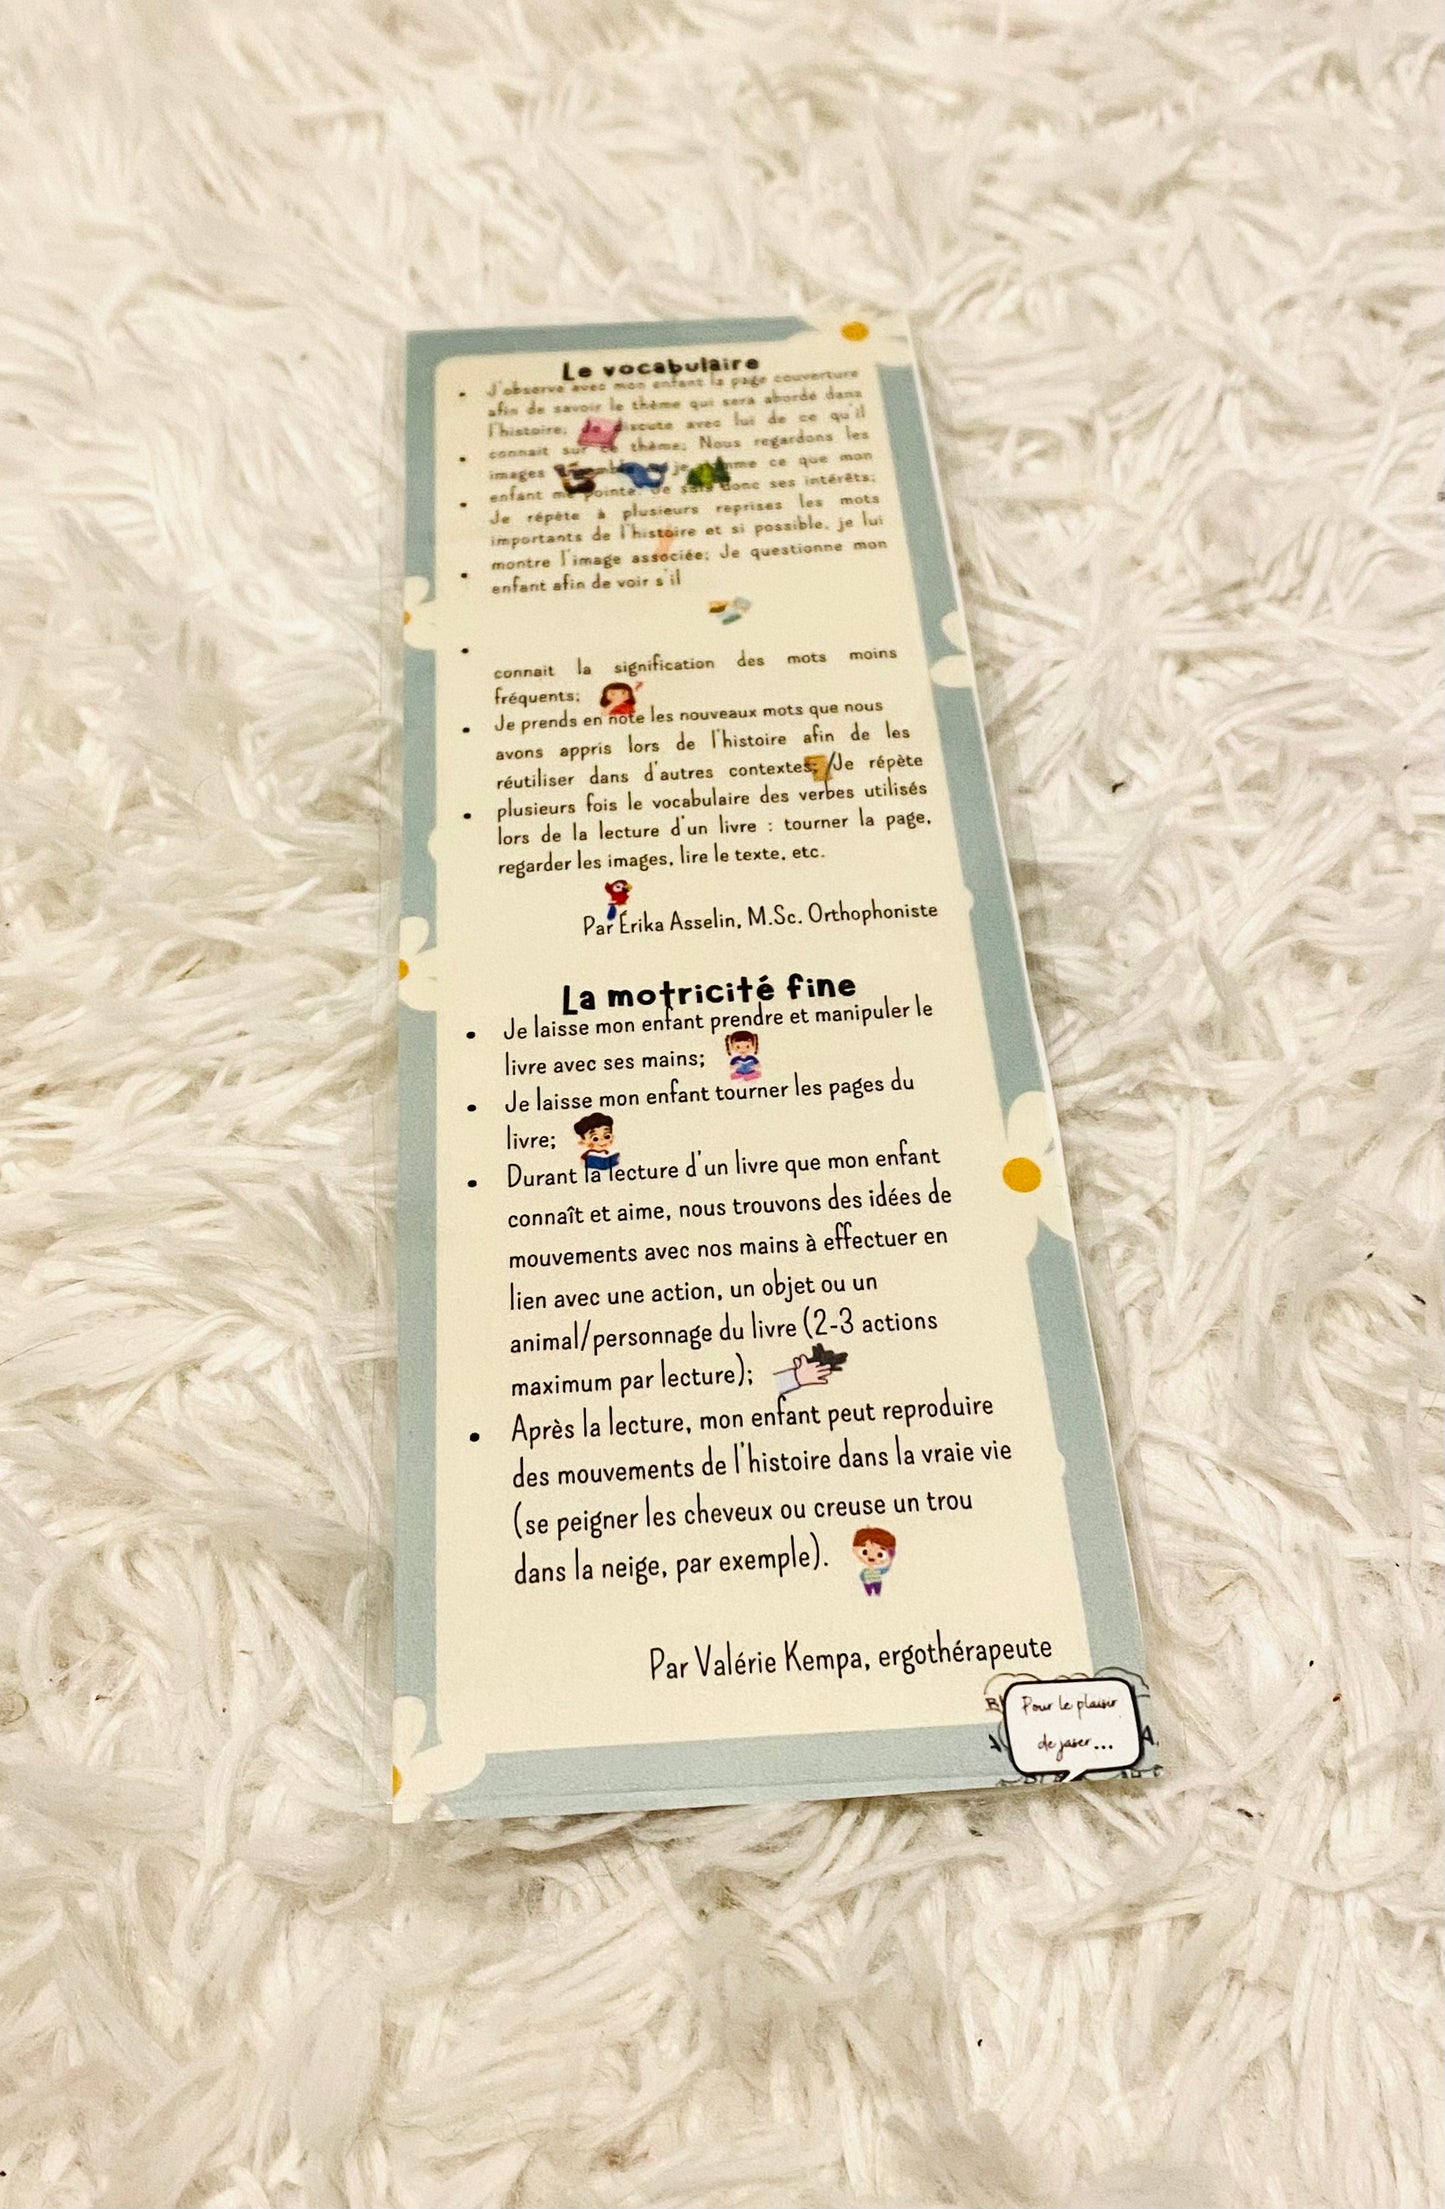 Le vocabulaire
J'observe avec mon enfant la page couverture
afin de savoir le thème qui sera abordé dans
l'histoire; Je discute avec lui de ce qu'il
connait sur ce thème; Nous regardons les
images je ce que mon
enfant me pointe. Je suis donc ses intérêts;
Je répète à plusieurs reprises les mots
importants de l'histoire et si possible, je lui
montre l'image associée; Je questionne mon
enfant afin de voir s'il
connait la signification des mots moins
fréquents;
Je prends en note les nouveaux mots que nous
avons appris lors de l'histoire afin de les
réutiliser dans d'autres contextes; Je répète
plusieurs fois le vocabulaire des verbes utilisés
lors de la lecture d'un livre : tourner la page,
regarder les images, lire le texte, etc.
Par Érika Asselin, M.Sc. Orthophoniste
La motricité fine
Je laisse mon enfant prendre et manipuler le
livre avec ses mains;
Je laisse mon enfant tourner les pages du
livre;
Durant la lecture d'un livre que mon enfant
connaît et aime, nous trouvons des idées de
mouvements avec nos mains à effectuer en
lien avec une action, un objet ou un
animal/personnage du livre (2-3 actions
maximum par lecture);
Après la lecture, mon enfant peut reproduire
des mouvements de l'histoire dans la vraie vie
(se peigner les cheveux ou creuse un trou
dans la neige, par exemple).
Par Valérie Kempa, ergothérapeute
Pour le plaisir
de jaser...